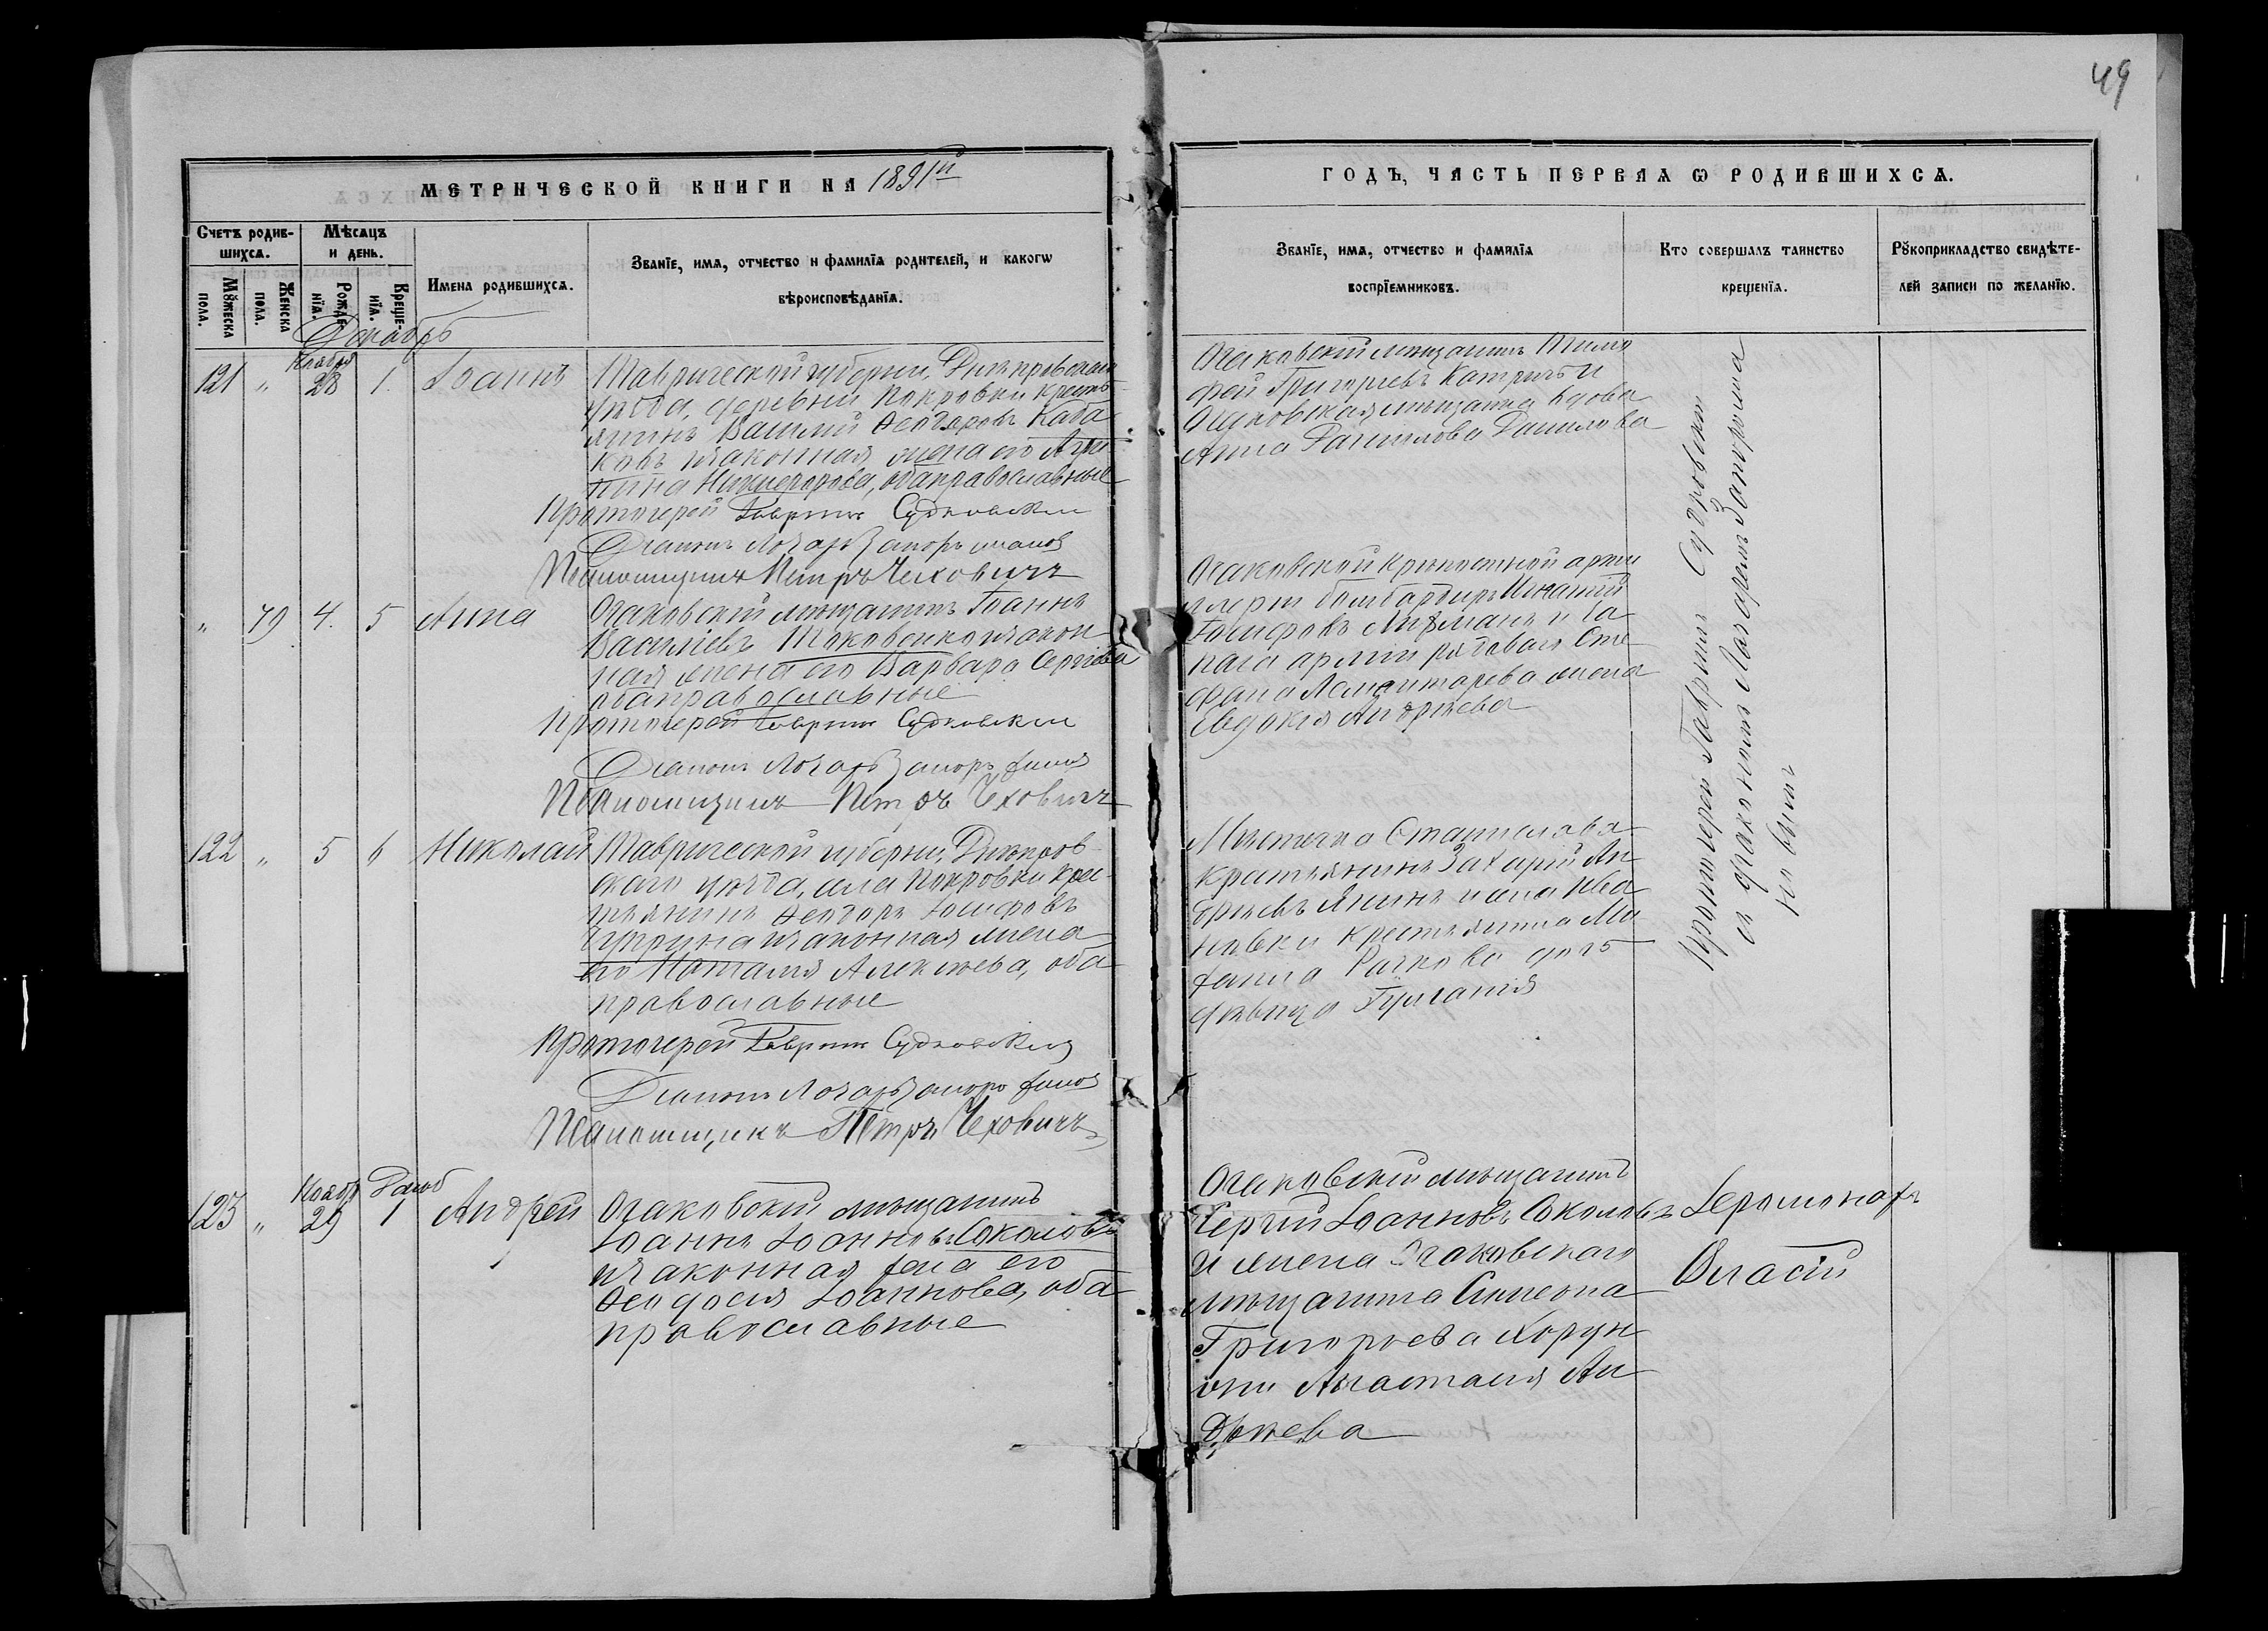 49
МЕТРИЧЕСКОЙ КНИГИ НА 1891й
ГОДЪ, ЧАСТЬ ПЕРВАЯ Ѡ РОДИВШИХСѦ.
Счетъ родив-
шихсѧ.
Мѣсѧцъ
и день.
Мꙋжеска
пола.
Женска
пола.
Рожде-
нїѧ.
Креще-
нїѧ.
Имена родившихсѧ.
Званїе, имѧ, отчество и фамилїѧ родителей, и какогѡ
вѣроисповѣданїѧ.
Званїе, имѧ, отчество и фамилїѧ
воспрїемниковъ.
Кто совершалъ таинство
крещенїѧ.
Рꙋкоприкладство свидѣте-
лей записи по желанїю.
Декабрь
121 „ Ноября 28 1. Іоаннъ
Таврической губерніи, Днѣпровскаго
уѣзда, деревни Покровки кресть-
янинъ Василій Ѳеодоровъ Каба
ковъ и законная жена его Агри
пина Никифорова, оба православные
Протоіерей Гавріилъ Судковскій
Діаконъ Лазарь Запорожановъ
Псаломщикъ Петръ Чеховичъ
Очаковскій мѣщанинъ Тимо
фей Григорьевъ и
Очаковская мѣщанка вдова
Анна Данилова Данилова
„ 79 4. 5 Анна
Очаковскій мѣщанинъ Іоаннъ
Васильевъ Токовенко и закон
ная жена его Варвара Сергіева
оба православные
Протоіерей Гавріилъ Судковскій
Діаконъ Лазарь
Псаломщикъ Петръ Чеховичъ
Очаковской крѣпостной арти
леріи бомбардиръ Игнатій
Іосифовъ и за
паса арміи рядоваго Сте
фана жена
Евдокія Андреева
122 „ 5 6 Николай
Таврической губерніи, Днѣпров-
скаго уѣзда, села Покровки крес-
тьянинъ Ѳеодоръ Іосифовъ
и законная жена
его Наталія Алексѣева, оба
православные
Протоіерей Гавріилъ Судковскій
Діаконъ Лазарь
Псаломщикъ Петръ Чеховичъ
Мѣстечка Станислава
крестьянинъ Захарій Ан
дреевъ и села Ива
новки крестьянина Ми
хаила Рачкова дочь
дѣвица
Протоіерей Гавріилъ Судковскій
съ діакономъ Лазаремъ Запорожа
новымъ
123 „ Ноябр 29 Декаб 1 Андрей
Очаковскій мѣщанинъ
Іоаннъ Іоанновъ Соколовъ
и законная жена его
Ѳеодосія Іоаннова, оба
православные
Очаковскій мѣщанинъ
Сергій Іоанновъ Соколовъ
и жена Очаковскаго
мѣщанина Симеона
Григорьева Хорун
жи Анастасія Ан
дреева
Іеромонахъ
Власій